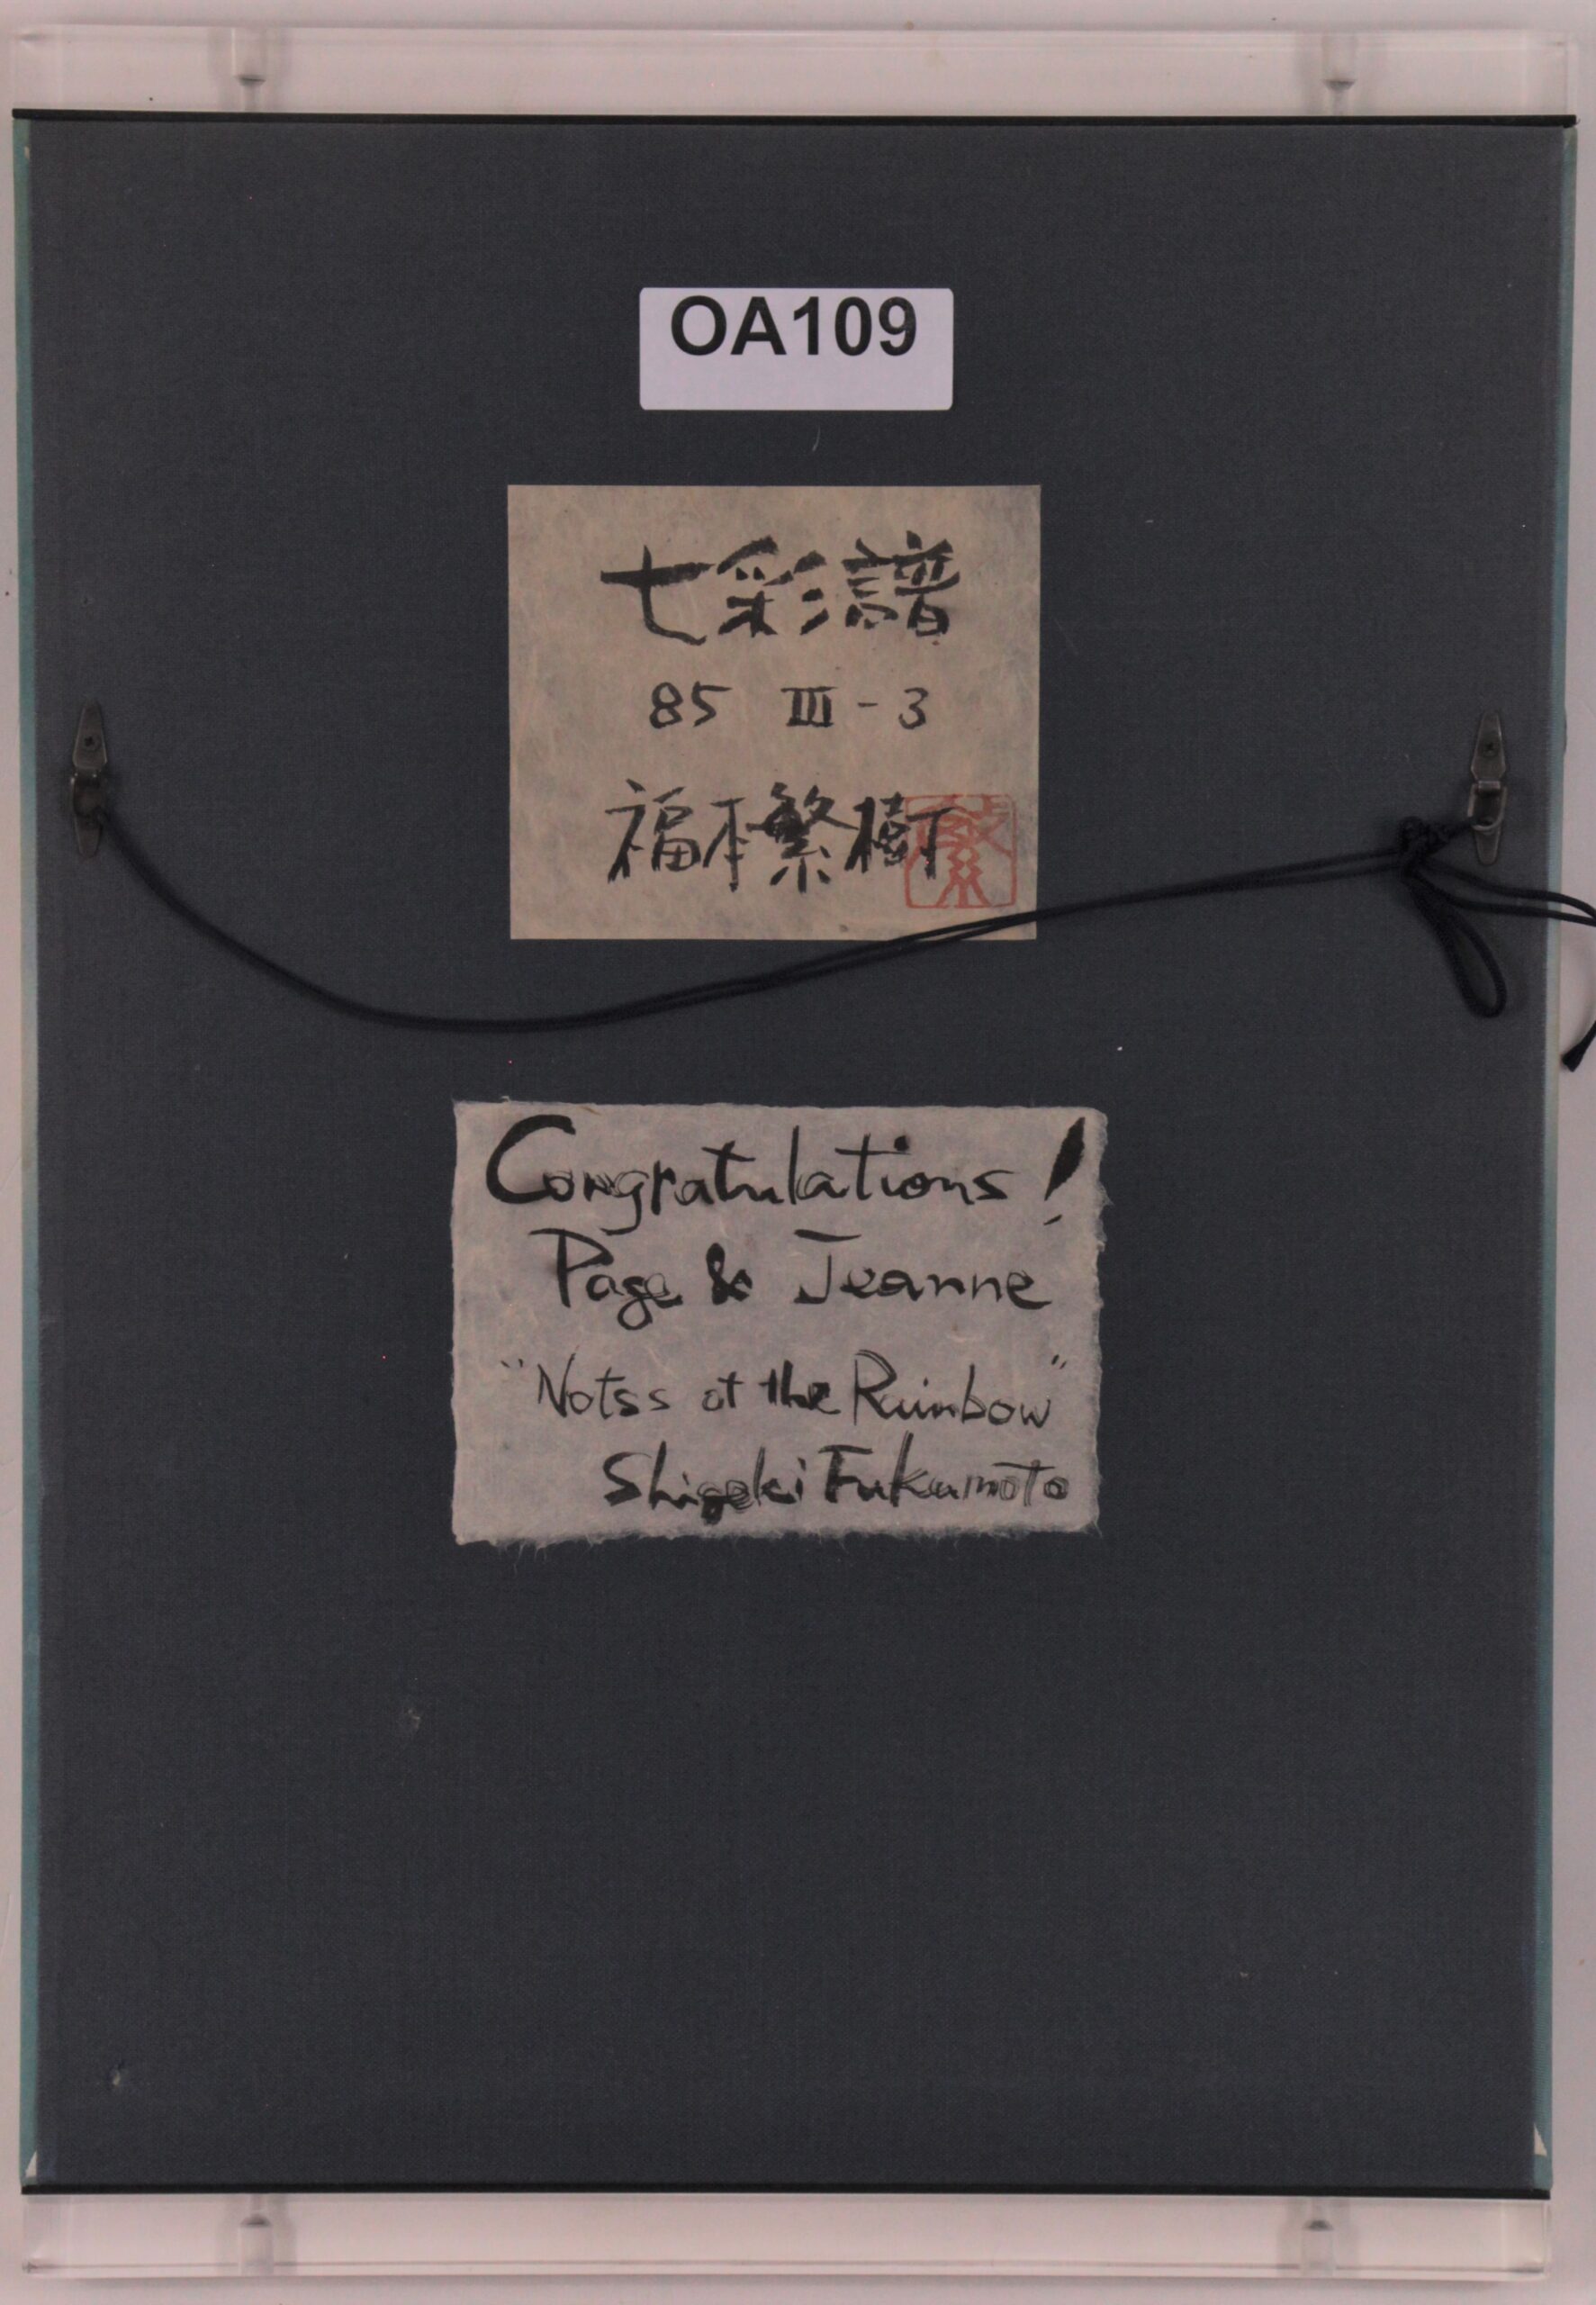 OA109
七彩譜
85 III - 3
福本繁樹
繁
Congratulations!
Page & Jeanne
"Notss ot the Rainbow"
Shigeki Fukumoto